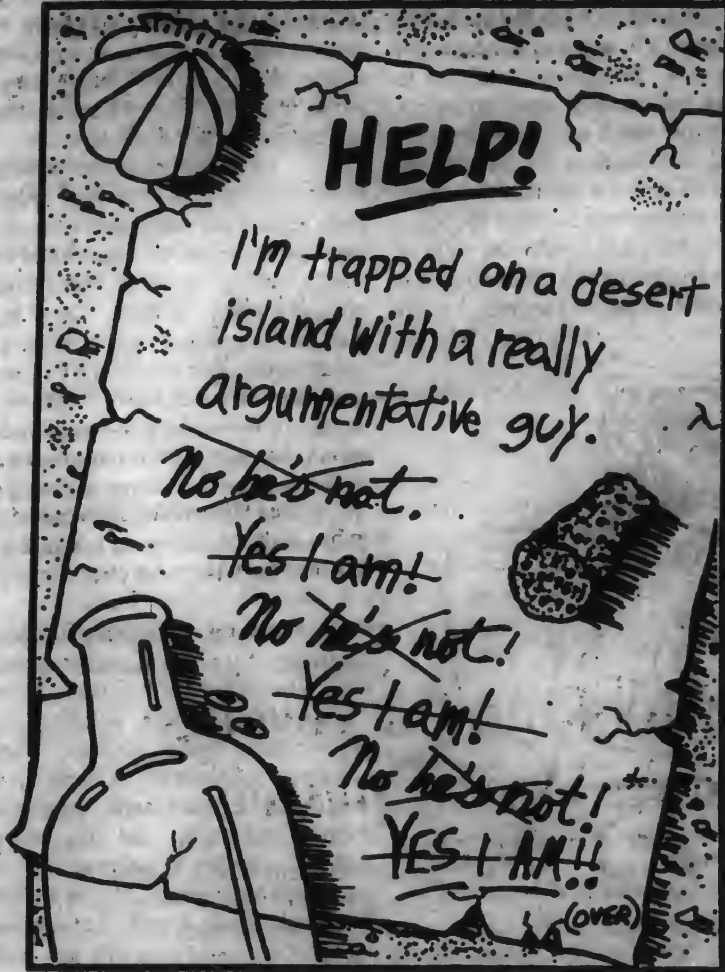 HELP!
I'm trapped on a desert
island with a really
argumentative guy.
No he's not.
Yes I am!
No he's not!
Yes I am!
No he's not!
YES I AM!!
(OVER)